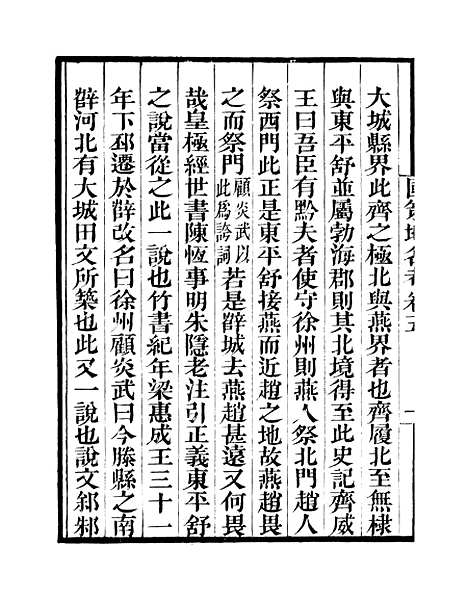 國策地名考卷五
大城縣界此齊之極北與燕界者也齊履北至無棣
與東平舒並屬勃海郡則其北境得至此史記齊威
王曰吾臣有黔夫者使守徐州則燕人祭北門趙人
祭西門此正是東平舒接燕而近趙之地故燕趙畏
之而祭門顧炎武以此爲誇詞若是薛城去燕趙甚遠又何畏
哉皇極經世書陳恆事明朱隱老注引正義東平舒
之說當從之此一說也竹書紀年梁惠成王三十一
年下邳遷於薛改名曰徐州顧炎武曰今滕縣之南
薛河北有大城田文所築也此又一說也說文䣄邾